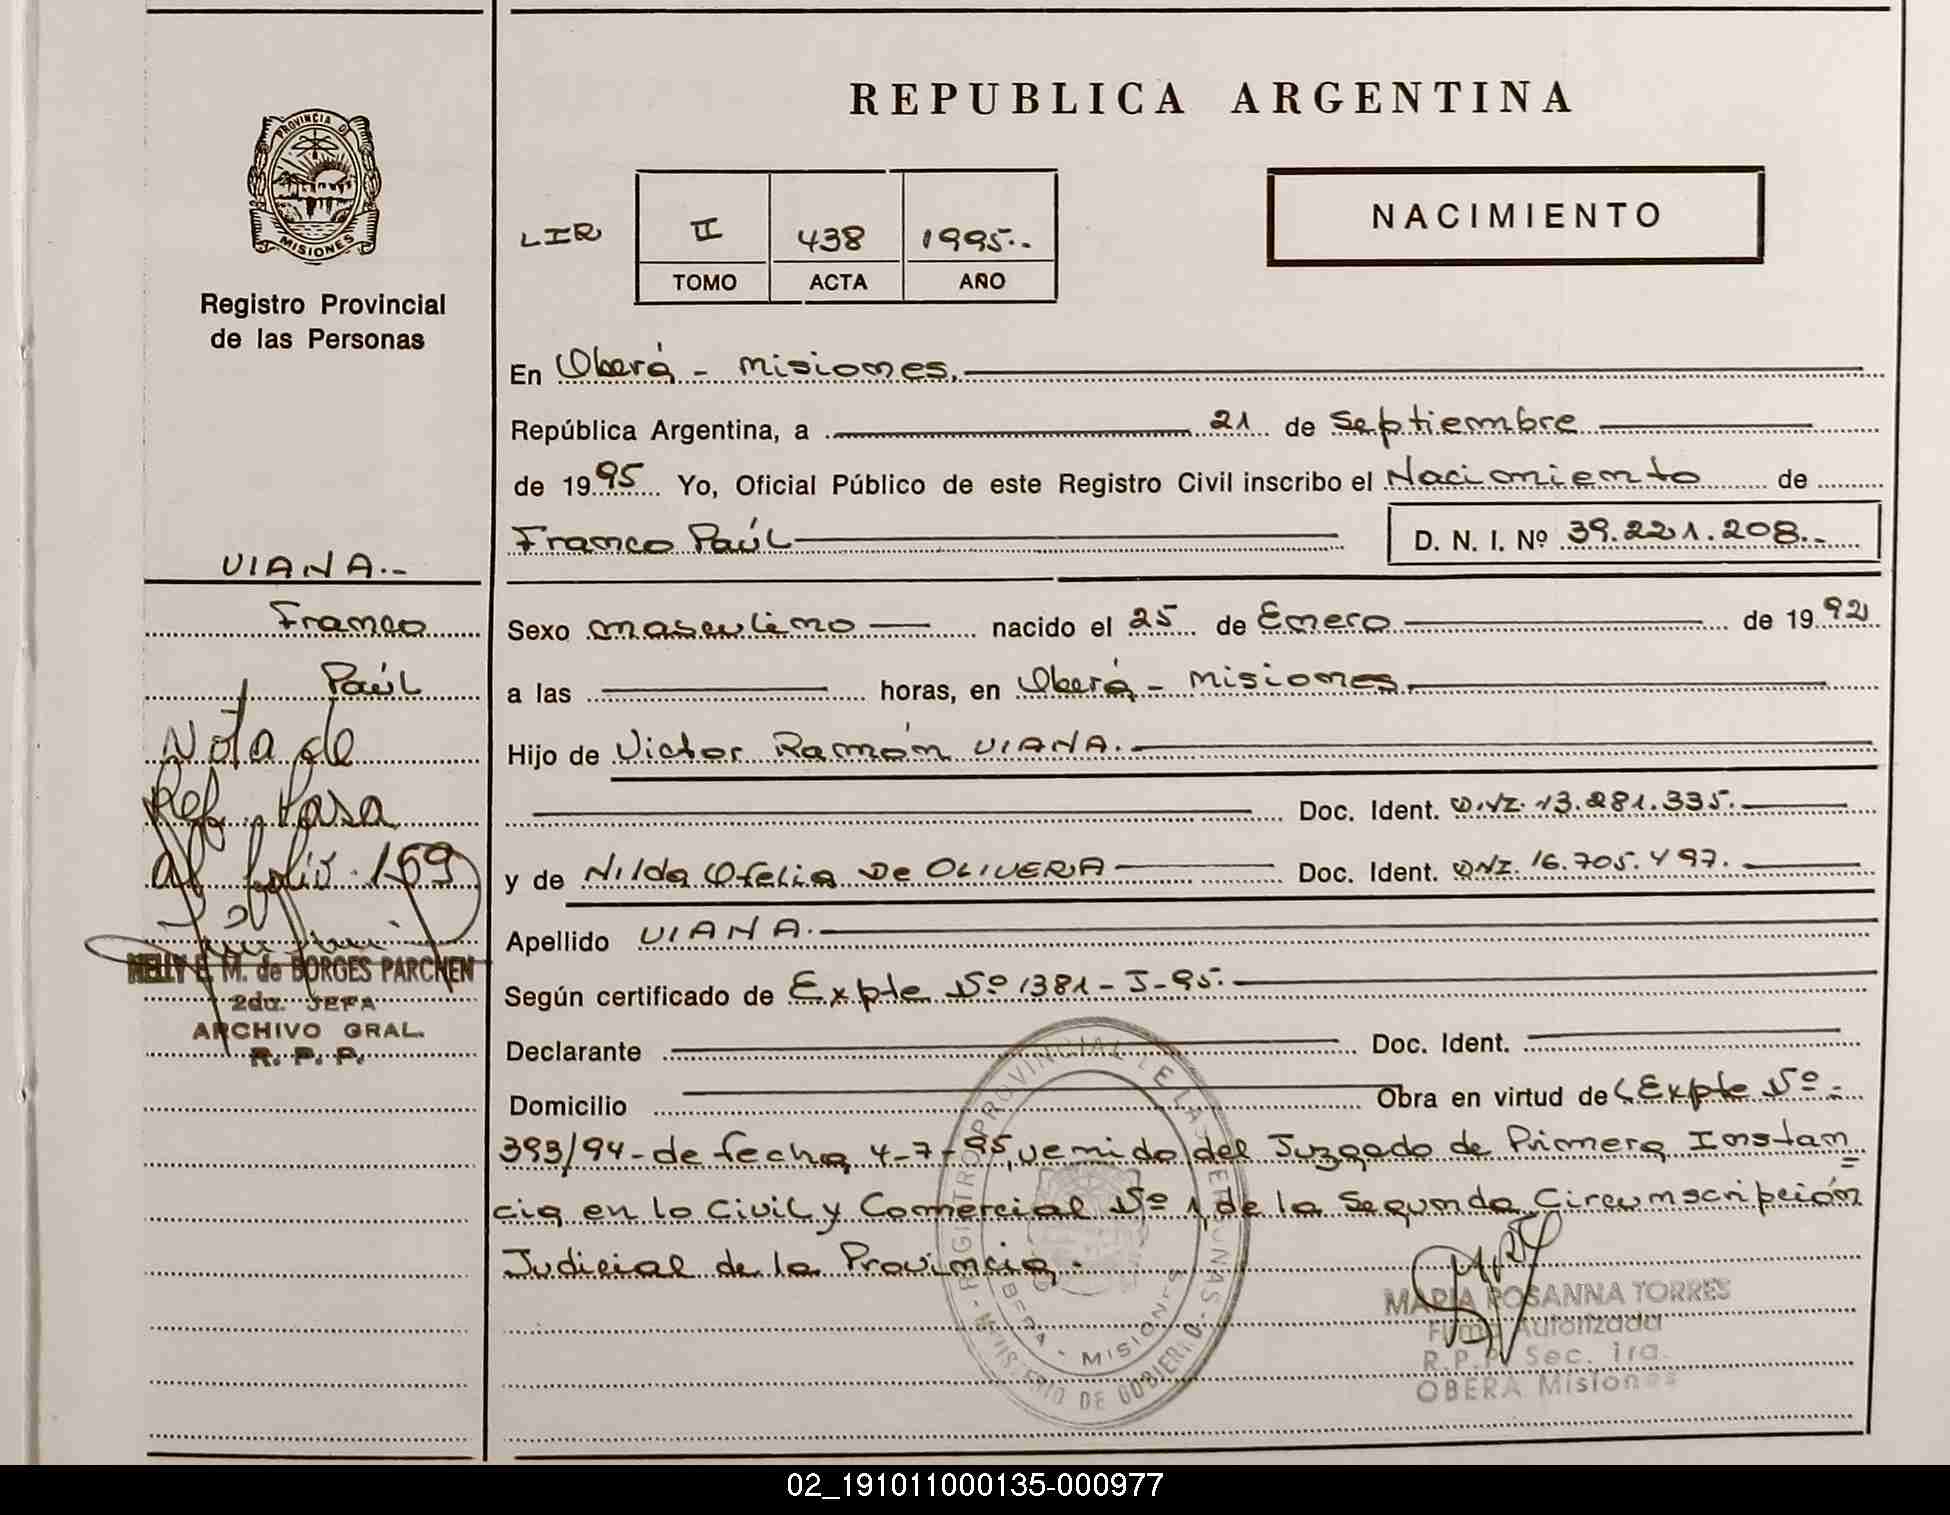 REPUBLICA ARGENTINA
PROVINCIA DE
MISIONES
Registro Provincial
de las Personas
LIR
II 438 1995.-
TOMO ACTA AÑO
NACIMIENTO
En Oberá - Misiones.
República Argentina, a 21 de Septiembre
de 1995 Yo, Oficial Público de este Registro Civil inscribo el Nacimiento de
Franco Paúl
D. N. I. Nº 39.221.208.-
VIANA.-
Franco
Paúl
Nota de
Ref. Pasa
al folio 159
NELLY E. M. de BORGES PARCHEN
2da. JEFA
ARCHIVO GRAL.
R. P. P.
Sexo masculino nacido el 25 de Enero de 1992
a las horas, en Oberá - Misiones.
Hijo de Victor Ramón VIANA.
Doc. Ident. D.N.I. 13.281.335.
y de Nilda Ofelia De OLIVERA Doc. Ident. DNI. 16.705.497.
Apellido VIANA.
Según certificado de Expte Nº 1381-J-95.
Declarante Doc. Ident.
Domicilio Obra en virtud de Expte Nº
393/94-de fecha 4-7-95, venido del Juzgado de Primera Instan=
cia en lo Civil y Comercial Nº 1, de la Segunda Circunscripción
Judicial de la Provincia.
REGISTRO PROVINCIAL DE LAS PERSONAS - MINISTERIO DE GOBIERNO
OBERA - MISIONES
MARIA ROSANNA TORRES
Firma Autorizada
R.P.P. Sec. 1ra.
OBERA Misiones
02_191011000135-000977